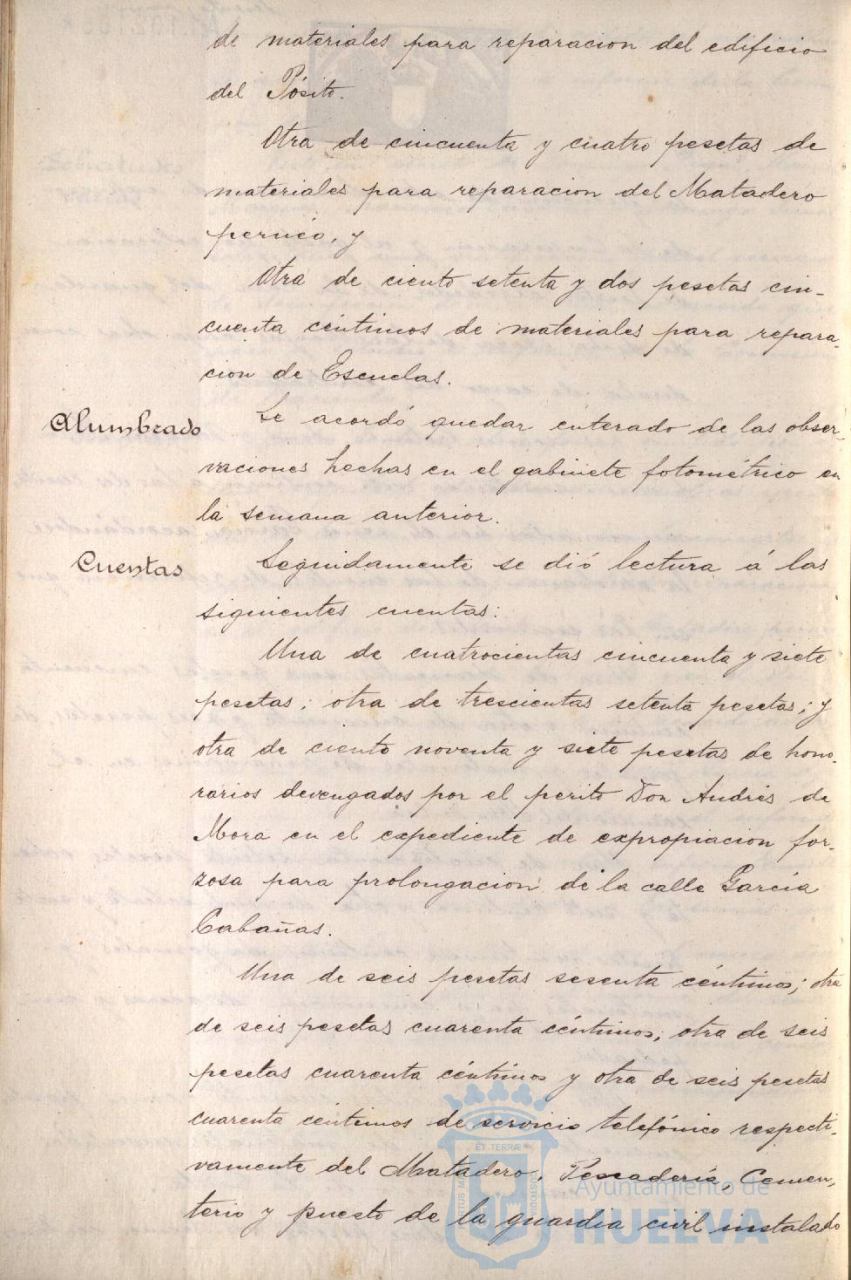 de materiales para reparacion del edificio
del Pósito.
Otra de cincuenta y cuatro pesetas de
materiales para reparacion del Matadero
pernéo, y
Otra de ciento setenta y dos pesetas cin-
cuenta céntimos de materiales para repara-
cion de Escuelas.
Alumbrado
Se acordó quedar enterado de las obser-
vaciones hechas en el gabinete fotométrico en
la semana anterior.
Cuentas
Seguidamente se dió lectura á las
siguientes cuentas:
Una de cuatrocientas cincuenta y siete
pesetas; otra de trescientas setenta pesetas; y
otra de ciento noventa y siete pesetas de hono-
rarios devengados por el perito Don Andrés de
Mora en el expediente de expropiacion for-
zosa para prolongacion de la calle García
Cabañas.
Una de seis pesetas sesenta céntimos; otra
de seis pesetas cuarenta céntimos; otra de seis
pesetas cuarenta céntimos y otra de seis pesetas
cuarenta céntimos de servicio telefónico respecti-
vamente del Matadero, Pescadería, Cemen-
terio y puesto de la guardia civil instalado
ET TERRÆ
Ayuntamiento de
HUELVA